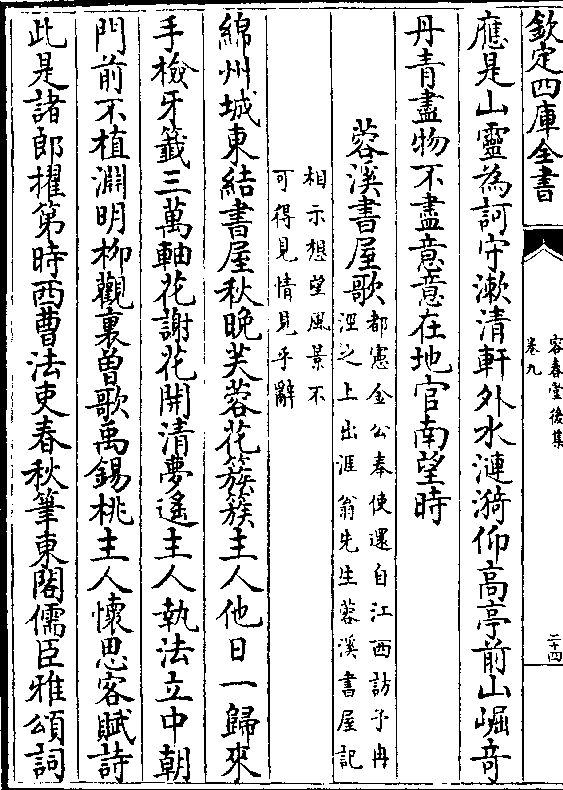 欽定四庫全書
容春堂後集
卷九
二十四
應是山靈為訶守漱清軒外水漣漪仰高亭前山崛竒
丹青盡物不盡意意在地官南望時
蓉溪書屋歌
都憲金公奉使還自江西訪予冉
涇之上出涯翁先生蓉溪書屋記
相示想望風景不
可得見情見乎辭
綿州城東結書屋秋晚芙蓉花簇簇主人他日一歸來
手檢牙籤三萬軸花謝花開清夢遙主人執法立中朝
門前不植淵明柳觀裏曽歌禹錫桃主人懷思客賦詩
此是諸郎擢第時西曹法吏春秋筆東閣儒臣雅頌詞